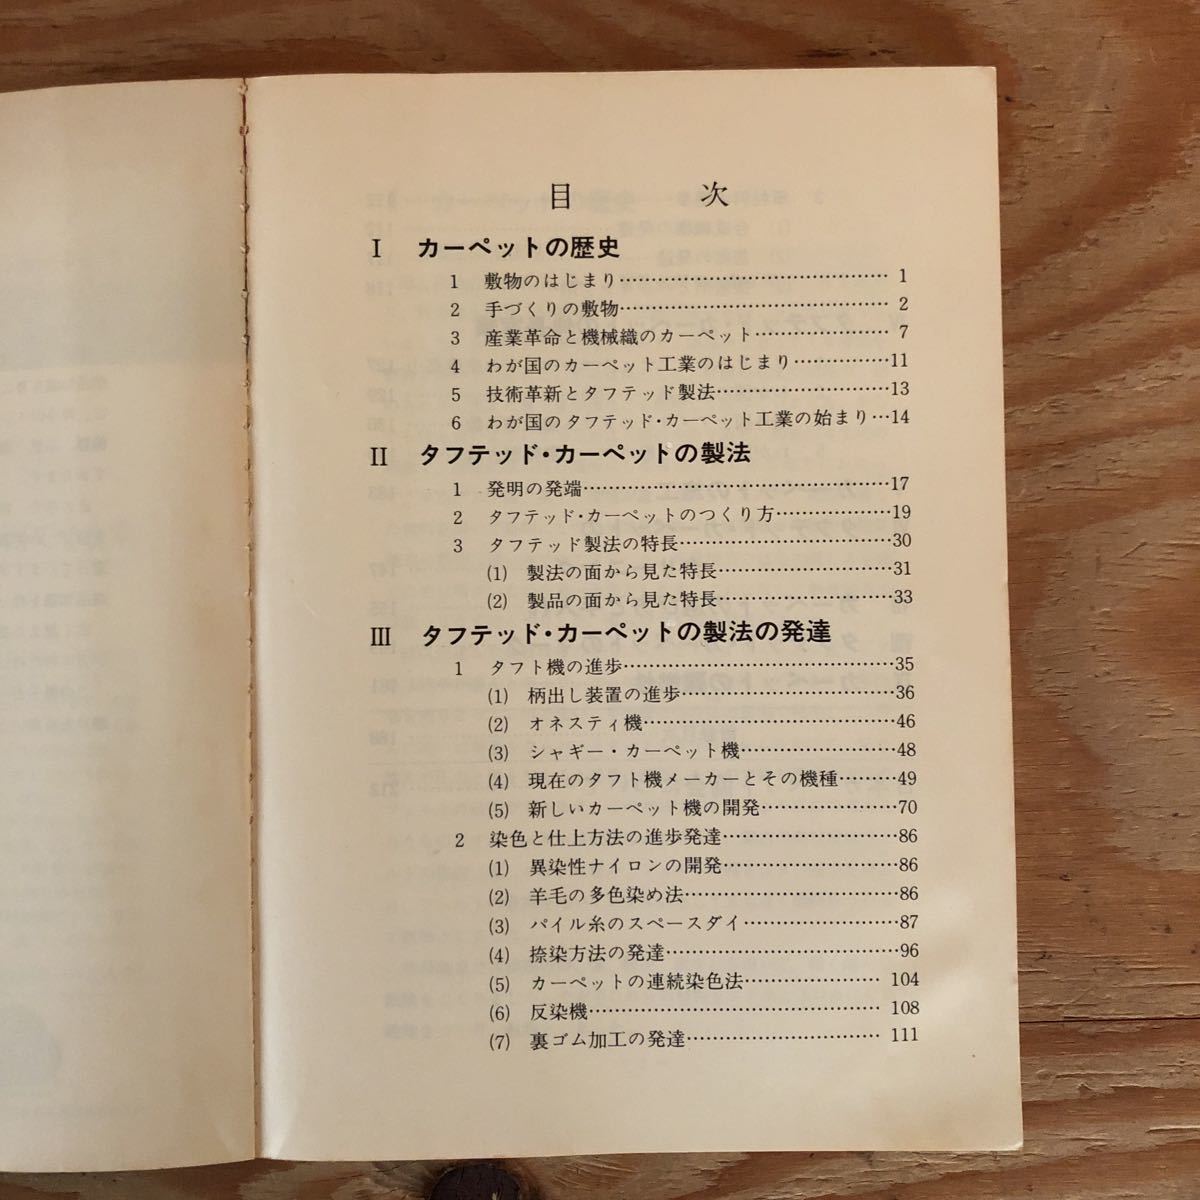 目次
Ⅰ カーペットの歴史
1 敷物のはじまり……………………………………1
2 手づくりの敷物……………………………………2
3 産業革命と機械織のカーペット…………………7
4 わが国のカーペット工業のはじまり……………11
5 技術革新とタフテッド製法………………………13
6 わが国のタフテッド・カーペット工業の始まり…14
Ⅱ タフテッド・カーペットの製法
1 発明の発端…………………………………………17
2 タフテッド・カーペットのつくり方……………19
3 タフテッド製法の特長……………………………30
(1) 製法の面から見た特長……………………………31
(2) 製品の面から見た特長……………………………33
Ⅲ タフテッド・カーペットの製法の発達
1 タフト機の進歩……………………………………35
(1) 柄出し装置の進歩…………………………………36
(2) オネスティ機………………………………………46
(3) シャギー・カーペット機…………………………48
(4) 現在のタフト機メーカーとその機種……………49
(5) 新しいカーペット機の開発………………………70
2 染色と仕上方法の進歩発達………………………86
(1) 異染性ナイロンの開発……………………………86
(2) 羊毛の多色染め法…………………………………86
(3) パイル糸のスペースダイ…………………………87
(4) 捺染方法の発達……………………………………96
(5) カーペットの連続染色法…………………………104
(6) 反染機………………………………………………108
(7) 裏ゴム加工の発達…………………………………111